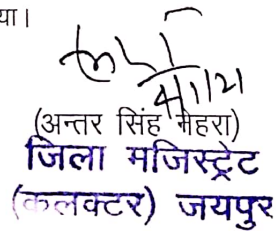 या।
(अन्तर सिंह नेहरा)
जिला मजिस्ट्रेट
(कलक्टर) जयपुर